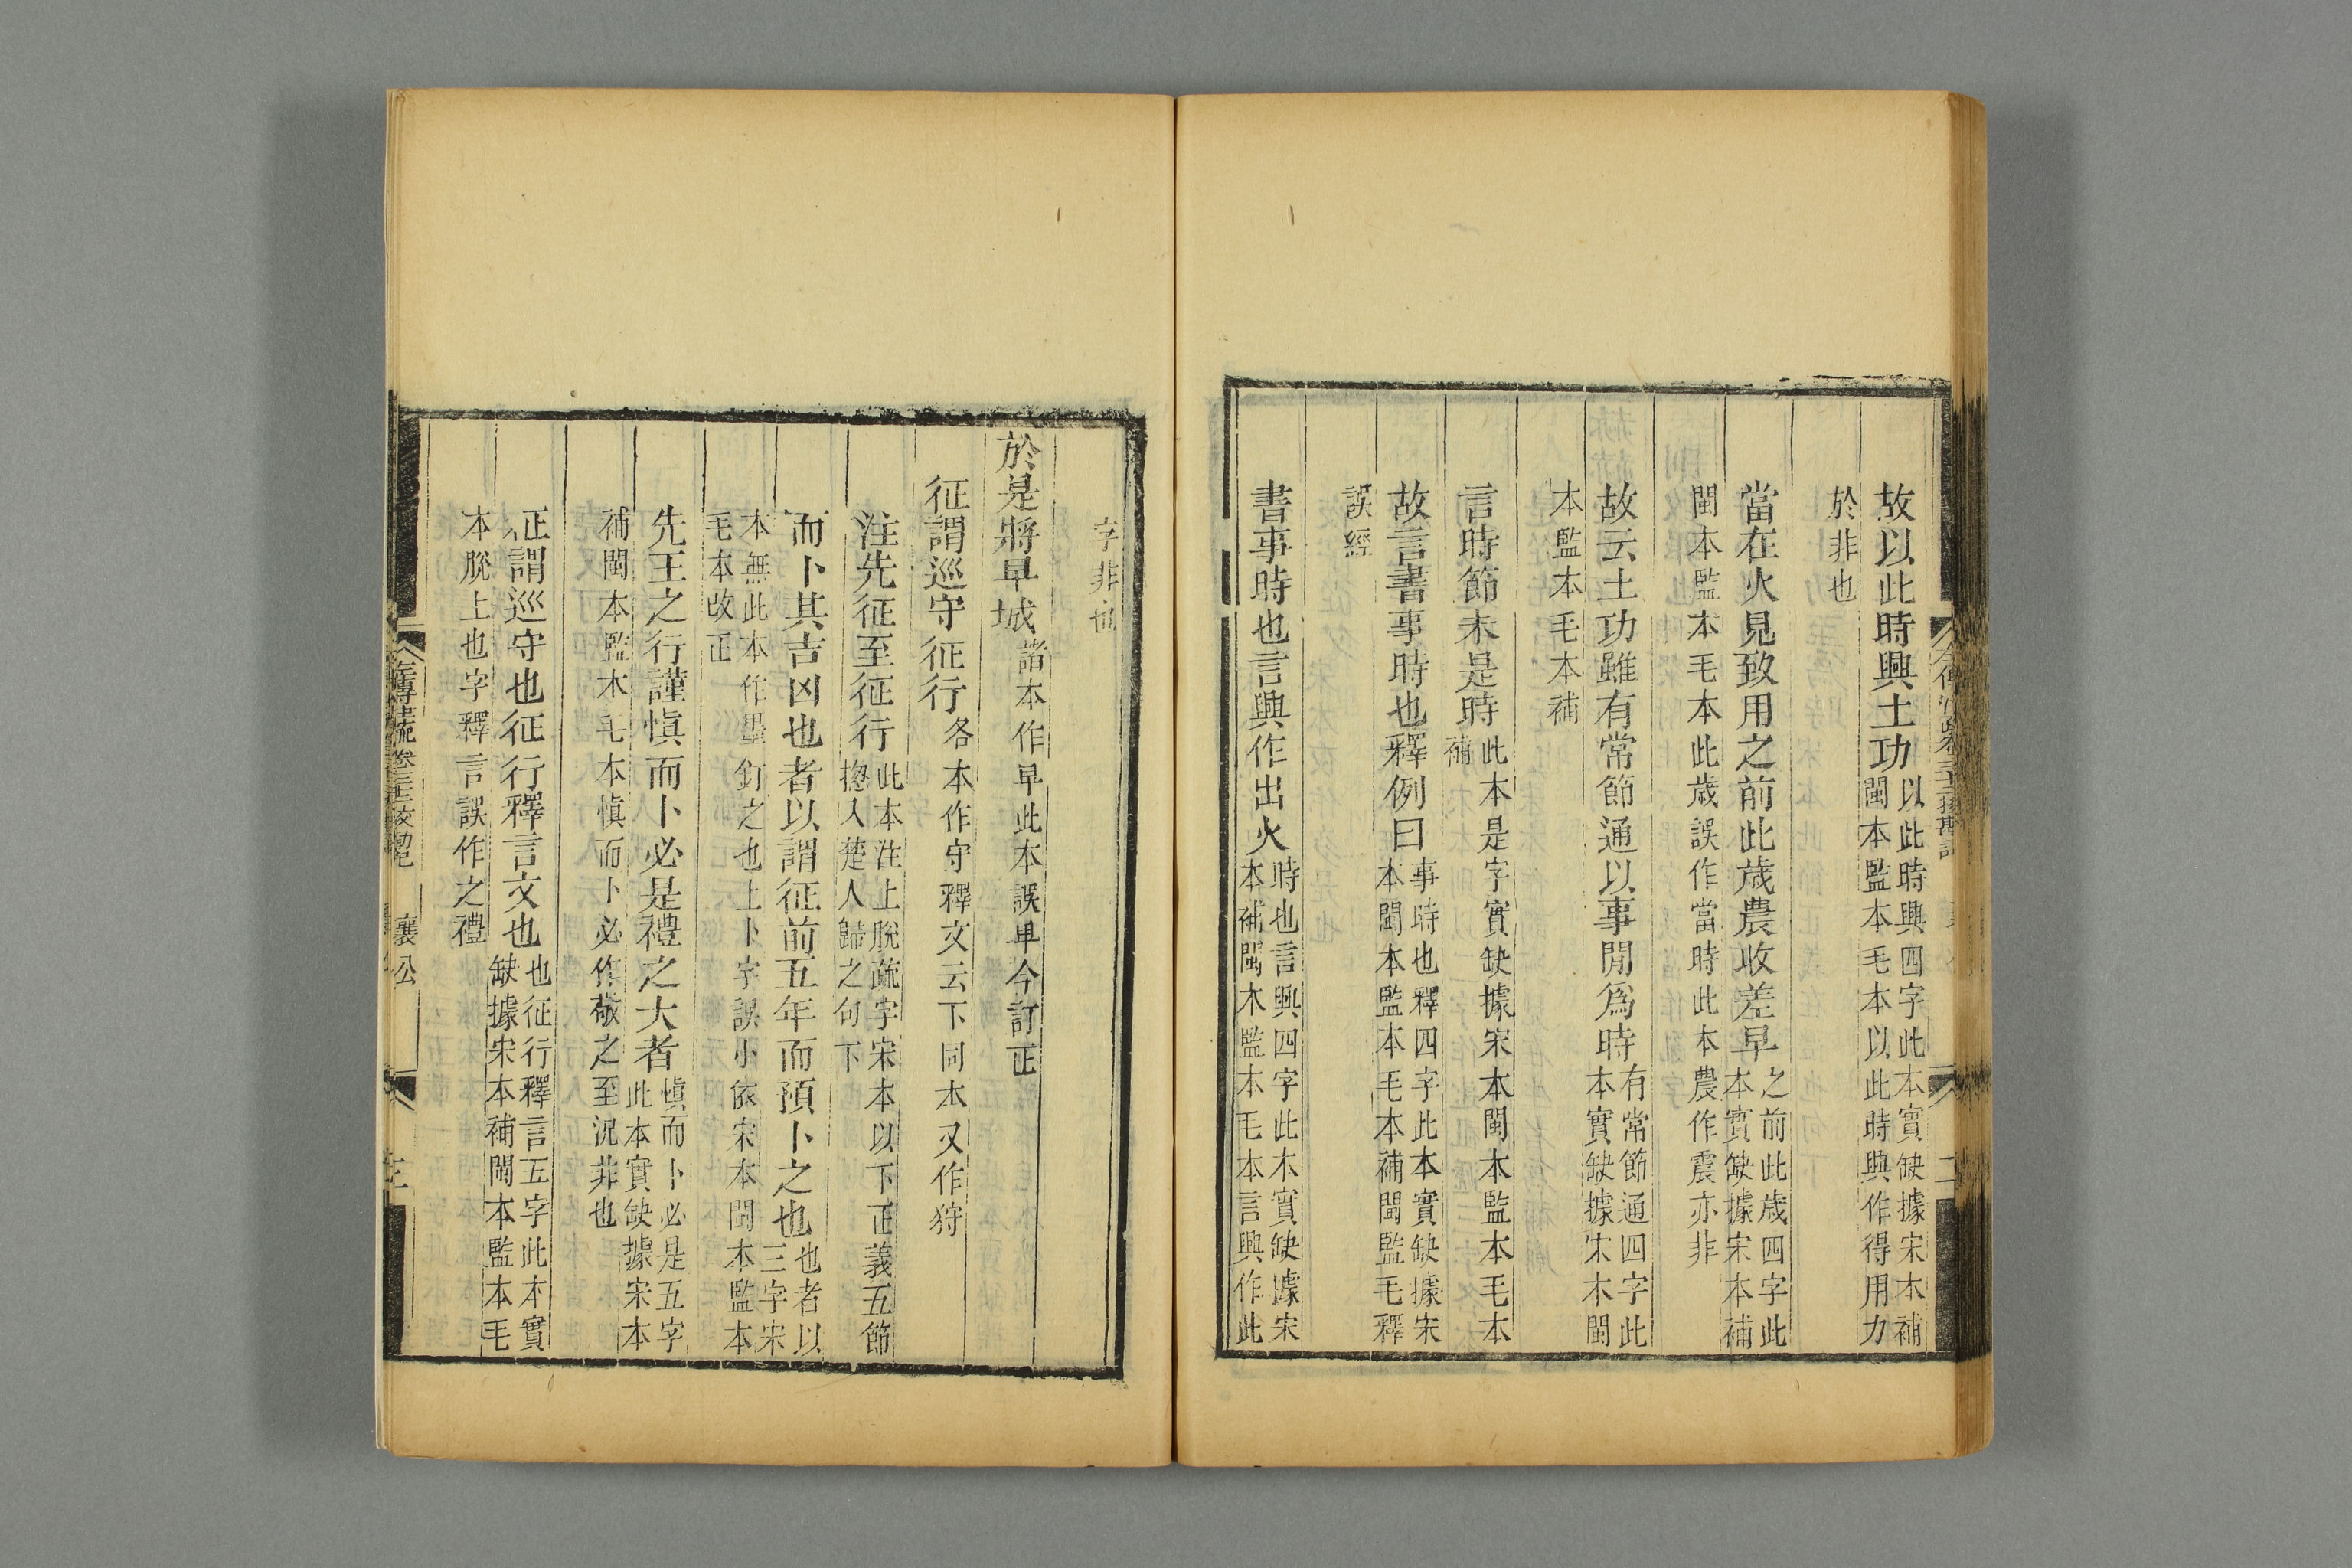 故以此時興土功以此時興四字此本實缺據宋本補閩本監本毛本以此時興作得用力
於非也
當在火見致用之前此歲農收差早之前此歲四字此本實缺據宋本補
閩本監本毛本此歲誤作當時此本農作震亦非
故云土功雖有常節通以事閒爲時有常節通四字此本實缺據宋本閩
本監本毛本補
言時節未是時此本是字實缺據宋本閩本監本毛本補
故言書事時也釋例曰事時也釋四字此本實缺據宋本閩本監本毛本補閩監毛釋
誤經
書事時也言興作出火時也言興四字此本實缺據宋本補閩本監本毛本言興作此
字非也
於是將早城諸本作早此本誤毋今訂正
征謂巡守征行各本作守釋文云下同本又作狩
注先征至征行此本注上脫疏字宋本以下正義五節揔入楚人歸之句下
而卜其吉凶也者以謂征前五年而預卜之也也者以三字宋
本無此本作墨釘之也上卜字誤小依宋本閩本監本毛本改正
先王之行謹慎而卜必是禮之大者慎而卜必是五字此本實缺據宋本
補閩本監本毛本慎而卜必作敬之至況非也
征謂巡守也征行釋言文也也征行釋言五字此本實缺據宋本補閩本監本毛
本脫上也字釋言誤作之禮
襄公
三
二